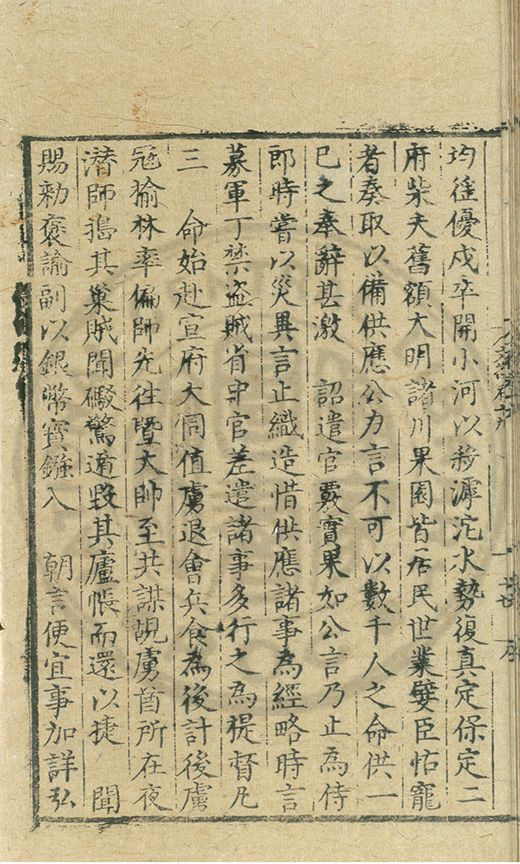 均徭優戍卒開小河以殺滹沱水勢復真定保定二
府柴夫舊額大明諸川果園皆居民世業嬖臣怙寵
者奏取以備供應公力言不可以數千人之命供一
已之奉辭甚激　詔遣官覈實果如公言乃止為侍
郎時嘗以災異言止織造惜供應諸事為經略時言
募軍丁禁盜賊省中官差遣諸事多行之為提督凡
三　命始赴宣府大同值虜退會兵食為後計後虜
寇榆林率偏師先往暨大帥至共謀覘虜酋所在夜
潛師搗其巢賊聞礮驚遁毀其廬帳而還以捷　聞
賜勑褒諭副以銀幣寶鏹入　朝言便宜事加詳弘